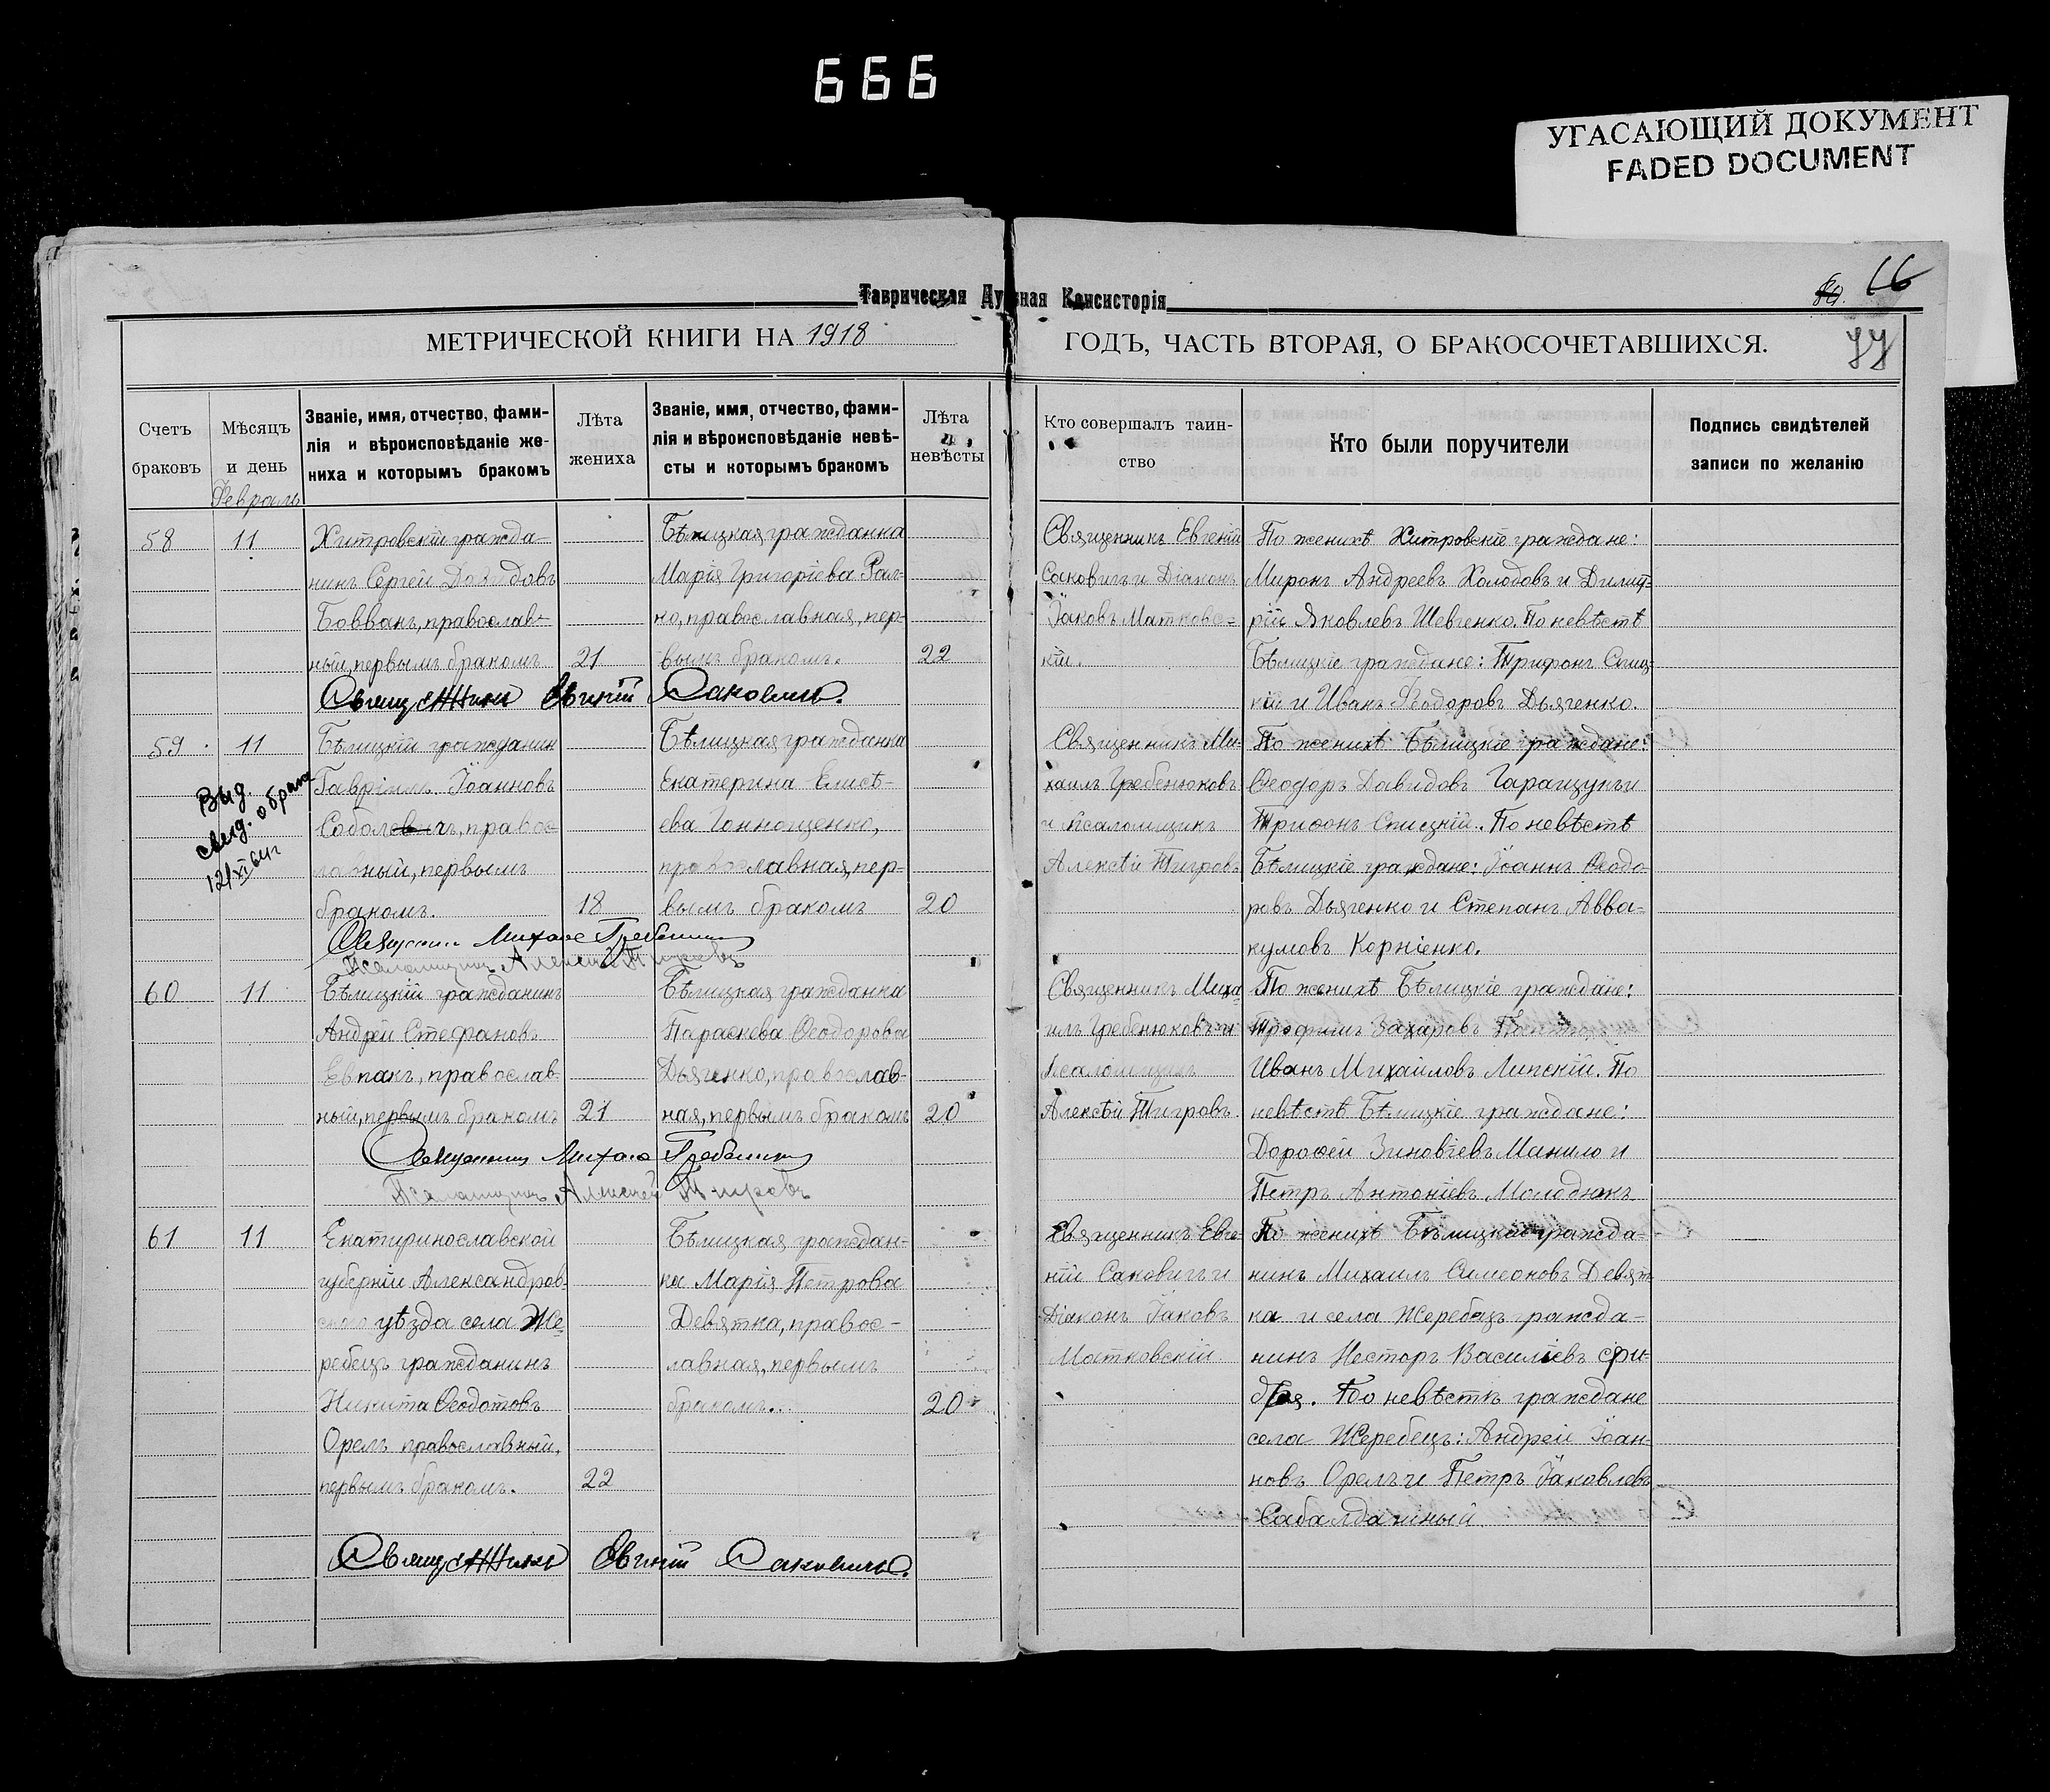 666
УГАСАЮЩИЙ ДОКУМЕНТ
FADED DOCUMENT
Таврическая Духовная Консисторія
66
77
МЕТРИЧЕСКОЙ КНИГИ НА 1918
ГОДЪ, ЧАСТЬ ВТОРАЯ, О БРАКОСОЧЕТАВШИХСЯ.
Счетъ
браковъ
Мѣсяцъ
и день
Званіе, имя, отчество, фами-
лія и вѣроисповѣданіе же-
ниха и которымъ бракомъ
Лѣта
жениха
Званіе, имя, отчество, фами-
лія и вѣроисповѣданіе невѣ-
сты и которымъ бракомъ
Лѣта
невѣсты
Кто совершалъ таин-
ство
Кто были поручители
Подпись свидѣтелей
записи по желанію
Февраль
58
11
Хитровскій гражда-
нинъ Сергей Давидовъ
Бовванъ, православ-
ный, первымъ бракомъ
21
Бѣлицкая гражданка
Марія Григоріева Рал-
ко, православная, пер-
вымъ бракомъ.
22
Священникъ Евгеній
Саковичъ и Діаконъ
Іаковъ Матковс-
кій.
По женихѣ Хитровскіе граждане:
Миронъ Андреевъ Холодовъ и Димит-
рій Яковлевъ Шевченко. По невѣстѣ
Бѣлицкіе граждане: Трифонъ Спиц-
кій и Иванъ Феодоровъ Дьяченко.
Священникъ Евгеній Саковичъ.
59
11
Выд.
свид. о браке
12/XI 64г
Бѣлицкій гражданин
Гавріилъ Іоанновъ
Соболевичъ, правос-
лавный, первымъ
бракомъ.
18
Бѣлицкая гражданка
Екатерина Елисѣ-
ева Гоннощенко,
православная, пер-
вымъ бракомъ
20
Священникъ Ми-
хаилъ Гребенюковъ
и Псаломщикъ
Алексѣй Тигровъ
По женихѣ Бѣлицкіе граждане:
Ѳеодоръ Давидовъ Гаращукъ и
Трифонъ Спицкій. По невѣстѣ
Бѣлицкіе граждане: Іоаннъ Ѳеодо-
ровъ Дьяченко и Степанъ Авва-
кумовъ Корніенко.
Священник Михаил Гребенюк
Псаломщикъ Алексей Тигровъ
60
11
Бѣлицкій гражданинъ
Андрей Стефановъ
Евпакъ, православ-
ный, первымъ бракомъ
21
Бѣлицкая гражданка
Параскева Ѳеодорова
Дьяченко, православ-
ная, первымъ бракомъ
20
Священникъ Миха-
илъ Гребенюковъ и
Псаломщикъ
Алексѣй Тигровъ.
По женихѣ Бѣлицкіе граждане:
Трофимъ Захаровъ
Иванъ Михайловъ Липскій. По
невѣстѣ Бѣлицкіе граждане:
Дорофей Зиновіевъ Манило и
Петръ Антоніевъ Молодыкъ
Священник Михаил Гребенюк
Псаломщикъ Алексей Тигровъ
61
11
Екатеринославской
губерніи Александров-
скаго уѣзда села Же-
ребецъ гражданинъ
Никита Ѳеодотовъ
Орелъ православный,
первымъ бракомъ.
22
Бѣлицкая граждан-
ка Марія Петрова
Девятка, правос-
лавная, первымъ
бракомъ.
20
Священникъ Евге-
ній Саковичъ и
Діаконъ Іаковъ
Матковскій
По женихѣ Бѣлицкій гражда-
нинъ Михаилъ Симеоновъ Девят-
ка и села Жеребецъ гражда-
нинъ Несторъ Василіевъ
По невѣстѣ граждане
села Жеребецъ: Андрей Іоан-
новъ Орелъ и Петръ Іаковлевъ
Сабалдашный
Священникъ Евгеній Саковичъ.